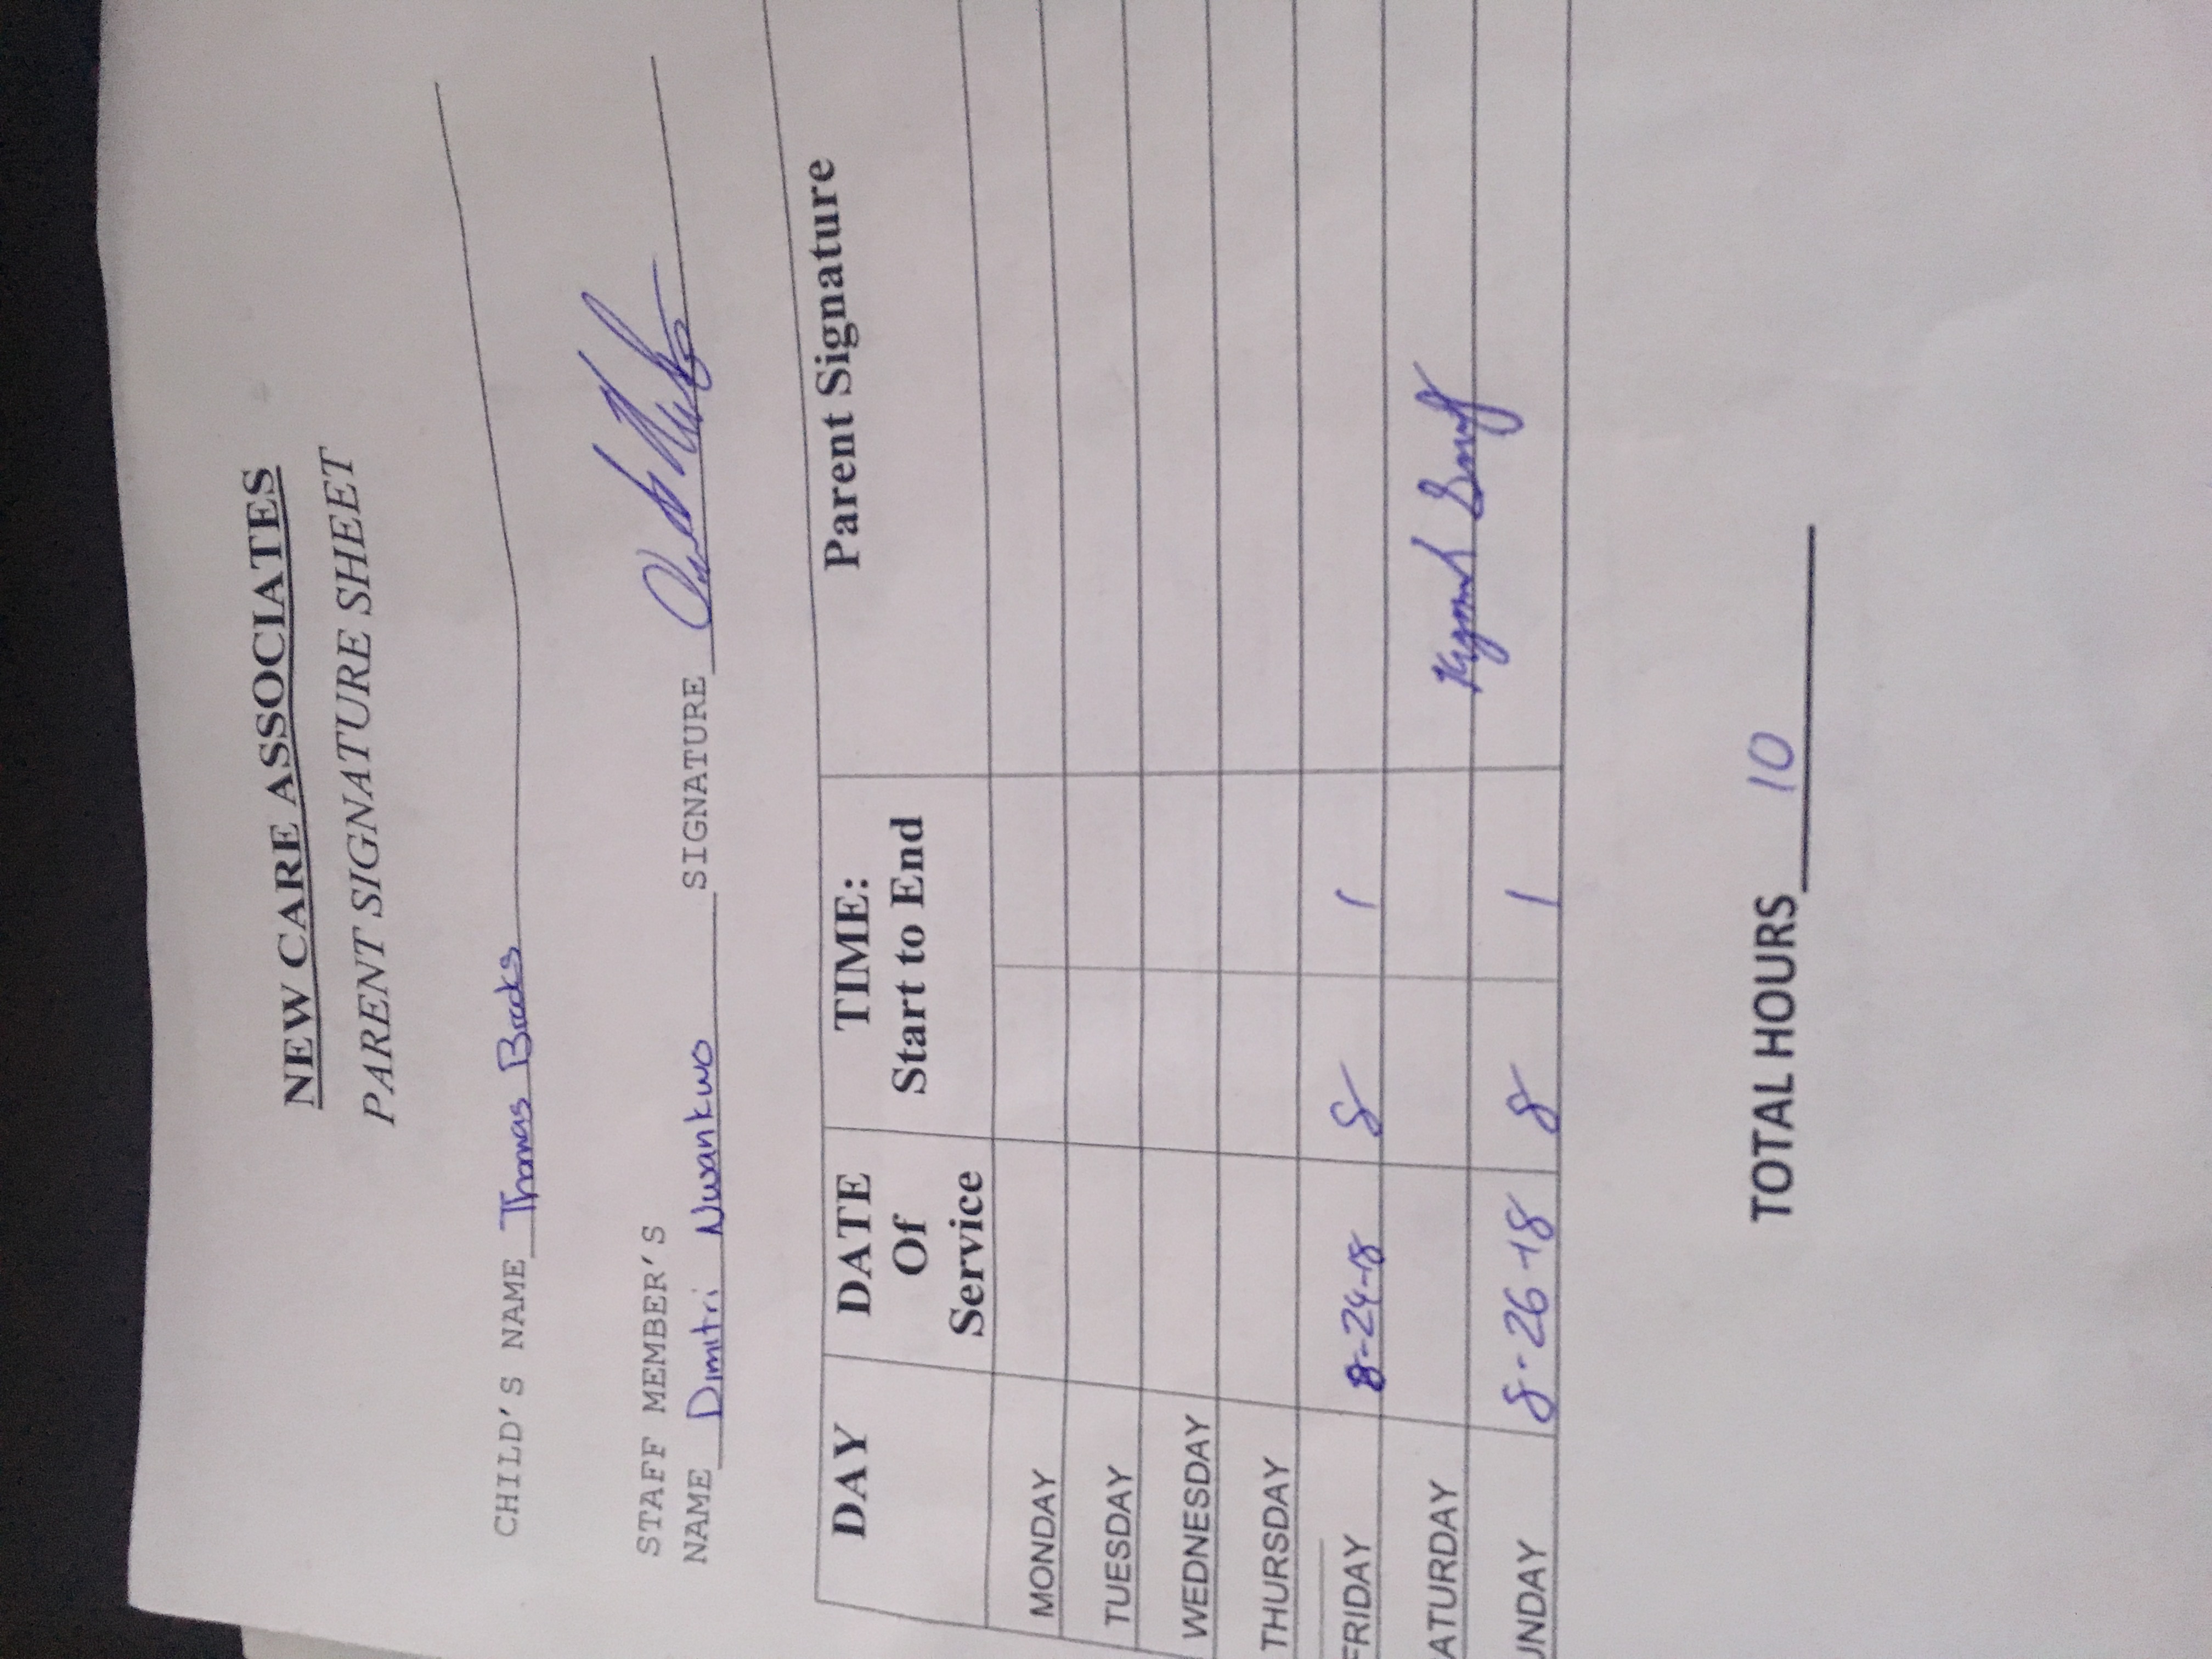 NEW CARE ASSOCIATES
PARENT SIGNATURE SHEET
CHILD'S NAME Thomas Brooks
STAFF MEMBER'S
NAME Dimitri Nwankwo SIGNATURE
DAY DATE Of Service TIME: Start to End Parent Signature
MONDAY
TUESDAY
WEDNESDAY
THURSDAY
FRIDAY 8-24-18 8 1
ATURDAY
UNDAY 8-26-18 8 1
TOTAL HOURS 10